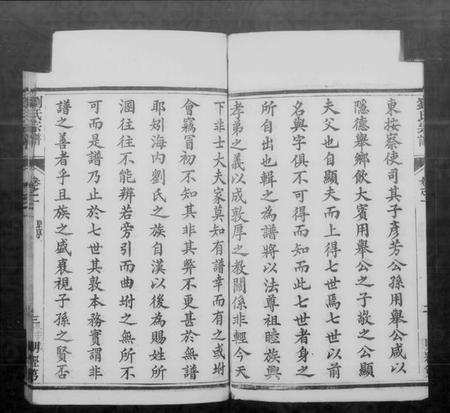 東按蔡使司其子彥芳公孫用舉公咸以
隱德舉鄉飲大賓用舉公之子敬之公顯
夫父也自顯夫而上得七世焉七世以前
名與字俱不可得而知而此七世者身之
所自出也輯之為譜將以法尊祖睦族興
孝弟之義以成敦厚之教關係非輕今天
下非士大夫家莫知有譜幸而有之或坿
會竊冒初不知其非其弊不更甚於無譜
耶矧海内劉氏之族自漢以後為賜姓所
溷往往不能辨若旁引而曲坿之無所不
可而是譜乃止於七世其敦本務實謂非
譜之善者乎且族之盛衰視子孫之賢否
劉氏宗譜
卷之一
三
明經第